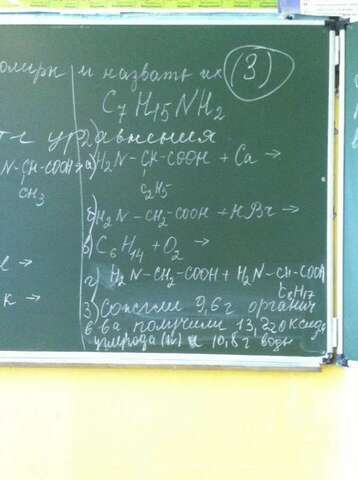 и назвать их (3)
C7H15NH2
уравнения
N-CH-COOH
CH3
а) H2N-CH-COOH + Ca →
C2H5
б) H2N-CH2-COOH + HBr →
в) C6H14 + O2 →
г) H2N-CH2-COOH + H2N-CH-COOH
C8H17
3) Сожгли 9,6 г органич
в ва получили 13,2 г оксида
углерода (IV) и 10,8 г воды
к →